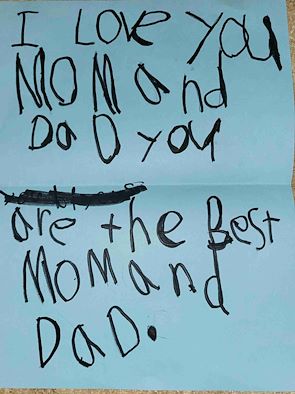 I LOVE you
MOM and
DaD you
are the Best
MOM and
DaD.